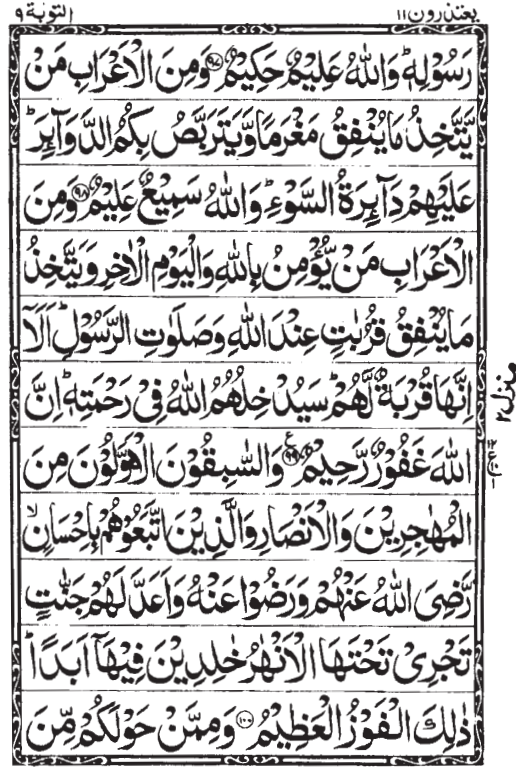 يعتذرون ١١
التوبة ٩
رَسُوْلِهٖ ؕ وَاللّٰهُ عَلِيْمٌ حَكِيْمٌ ﴿۹۷﴾ وَمِنَ الْاَعْرَابِ مَنْ
يَّتَّخِذُ مَا يُنْفِقُ مَغْرَمًا وَّيَتَرَبَّصُ بِكُمُ الدَّوَآئِرَ ؕ
عَلَيْهِمْ دَآئِرَةُ السَّوْءِ ؕ وَاللّٰهُ سَمِيْعٌ عَلِيْمٌ ﴿۹۸﴾ وَمِنَ
الْاَعْرَابِ مَنْ يُّؤْمِنُ بِاللّٰهِ وَالْيَوْمِ الْاٰخِرِ وَيَتَّخِذُ
مَا يُنْفِقُ قُرُبٰتٍ عِنْدَ اللّٰهِ وَصَلَوٰتِ الرَّسُوْلِ ؕ اَلَاۤ
اِنَّهَا قُرْبَةٌ لَّهُمْ ؕ سَيُدْخِلُهُمُ اللّٰهُ فِيْ رَحْمَتِهٖ ؕ اِنَّ
اللّٰهَ غَفُوْرٌ رَّحِيْمٌ ﴿۹۹﴾ ع وَالسّٰبِقُوْنَ الْاَوَّلُوْنَ مِنَ
الْمُهٰجِرِيْنَ وَالْاَنْصَارِ وَالَّذِيْنَ اتَّبَعُوْهُمْ بِاِحْسَانٍ ۙ
رَّضِيَ اللّٰهُ عَنْهُمْ وَرَضُوْا عَنْهُ وَاَعَدَّ لَهُمْ جَنّٰتٍ
تَجْرِيْ تَحْتَهَا الْاَنْهٰرُ خٰلِدِيْنَ فِيْهَاۤ اَبَدًا ؕ
ذٰلِكَ الْفَوْزُ الْعَظِيْمُ ﴿۱۰۰﴾ وَمِمَّنْ حَوْلَكُمْ مِّنَ
منزل ۲